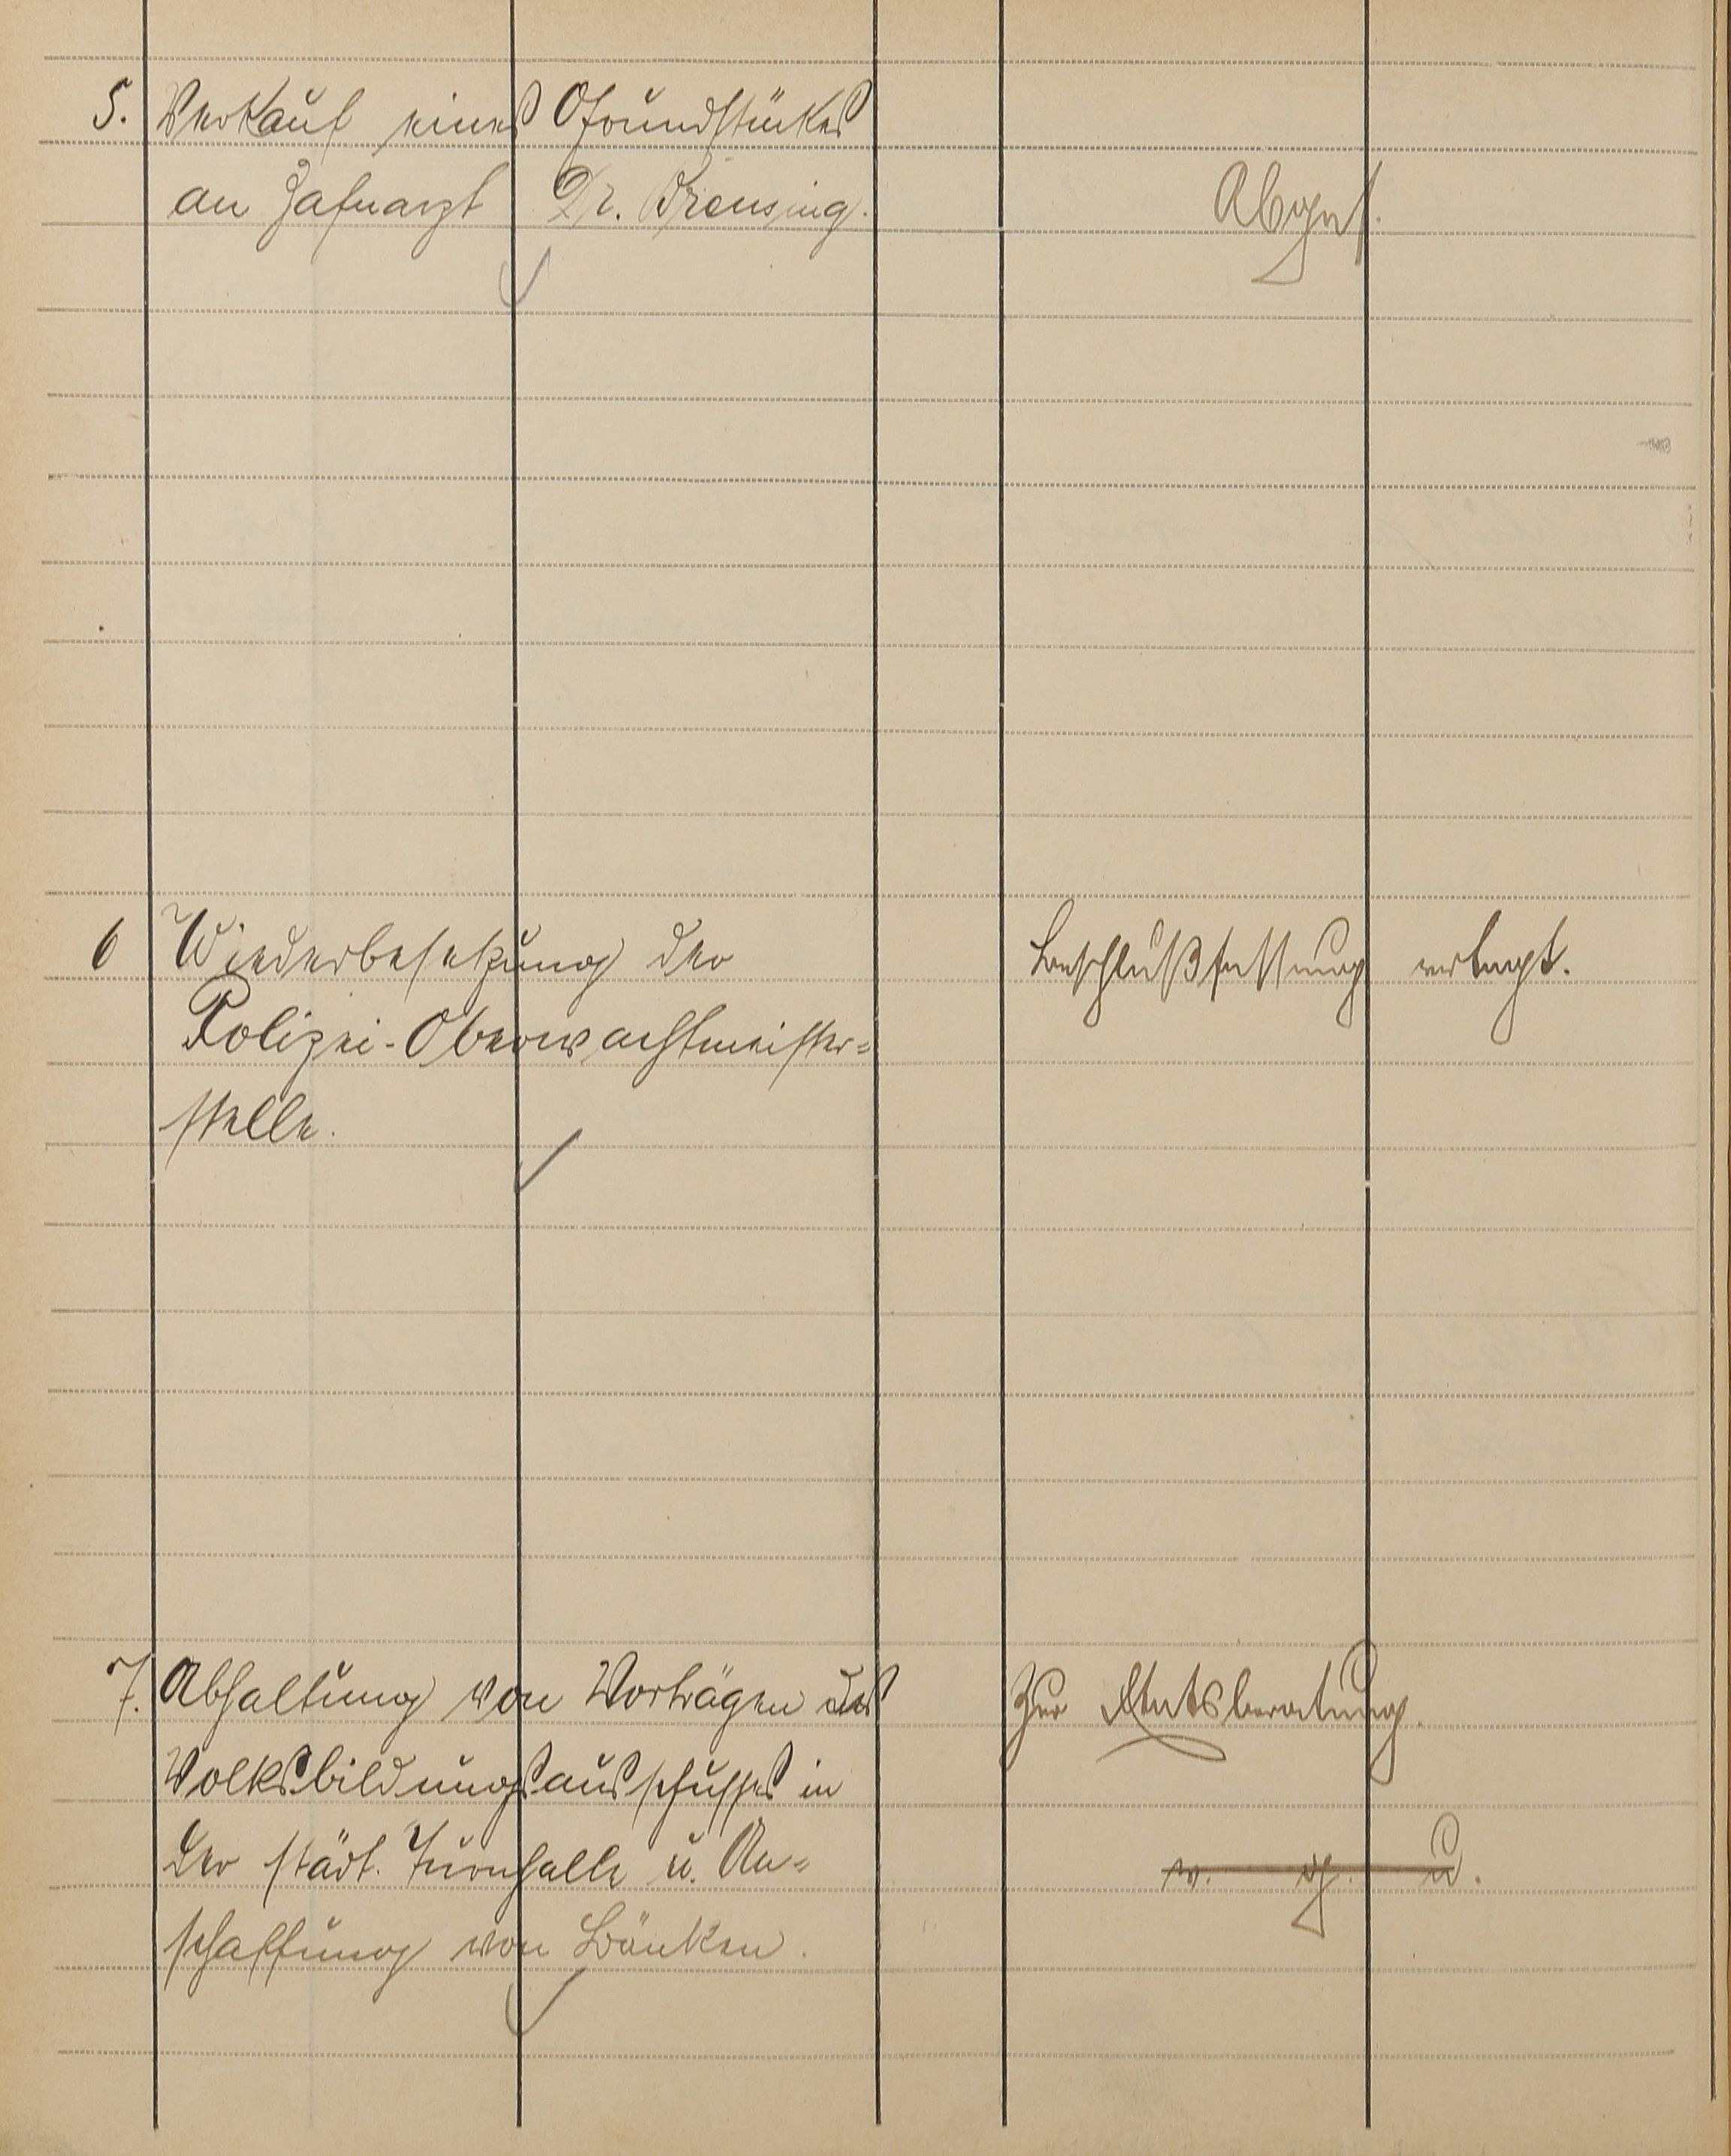 5. Verkauf eines Grundstückes
an Zahnarzt Dr. Brensing.
Abges.
6 Wiederbesetzung der
Polizei-Oberwachtmeister=
stelle.
Beschlußfassung vertagt.
7. Abhaltung von Vorträgen des
Volksbildungsausschusses in
der städt. Turnhalle u. An=
schaffung von Bänken.
Zur Etatsberatung.
v. g. u.